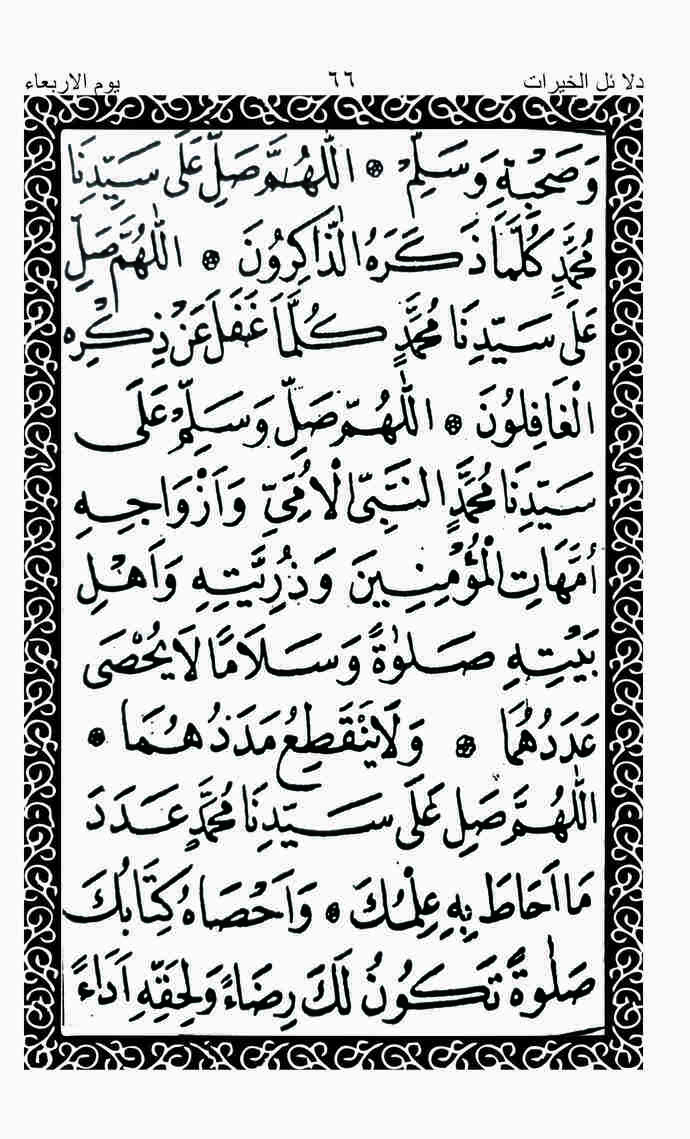 دلائل الخيرات ٦٦ يوم الاربعاء
وَصَحْبِهٖ وَسَلِّمْ ۞ اَللّٰهُمَّ صَلِّ عَلٰى سَيِّدِنَا
مُحَمَّدٍ كُلَّمَا ذَكَرَهُ الذَّاكِرُونَ ۞ اَللّٰهُمَّ صَلِّ
عَلٰى سَيِّدِنَا مُحَمَّدٍ كُلَّمَا غَفَلَ عَنْ ذِكْرِهِ
الْغَافِلُونَ ۞ اَللّٰهُمَّ صَلِّ وَسَلِّمْ عَلَى
سَيِّدِنَا مُحَمَّدٍ النَّبِيِّ الْاُمِّيِّ وَاَزْوَاجِهِ
اُمَّهَاتِ الْمُؤْمِنِينَ وَذُرِّيَّتِهِ وَاَهْلِ
بَيْتِهِ صَلٰوةً وَسَلَامًا لَا يُحْصَى
عَدَدُهُمَا ۞ وَلَا يَنْقَطِعُ مَدَدُهُمَا ۞
اَللّٰهُمَّ صَلِّ عَلَى سَيِّدِنَا مُحَمَّدٍ عَدَدَ
مَا اَحَاطَ بِهِ عِلْمُكَ ۞ وَاَحْصَاهُ كِتَابُكَ
صَلٰوةً تَكُونُ لَكَ رِضَاءً وَلِحَقِّهِ اَدَاءً